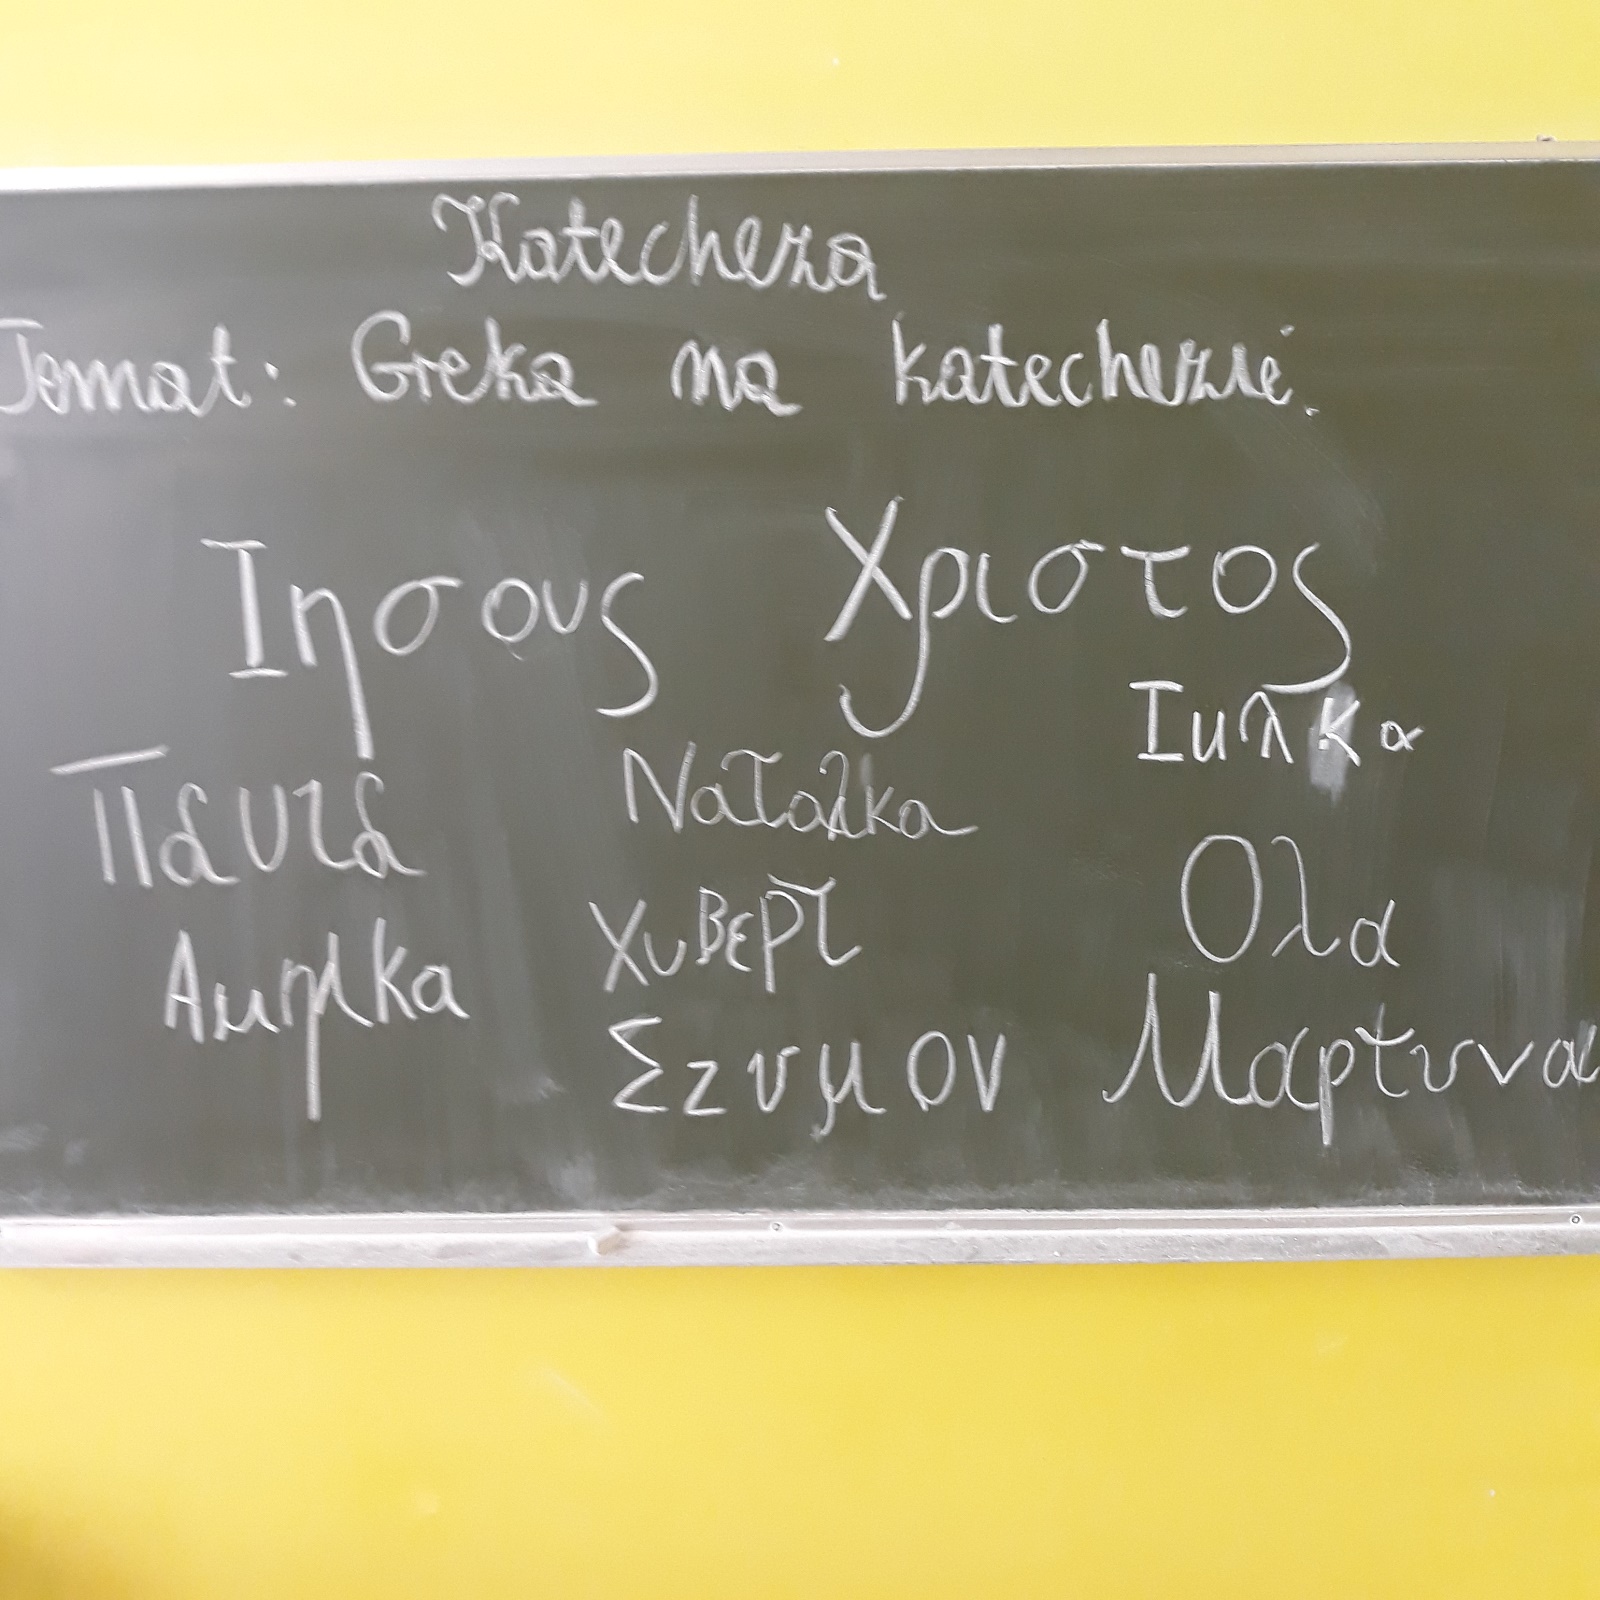 Katecheza
Temat: Greka na katechezie.
Ιησους Χριστος
Ναταλκα
Χυβερτ
Ολα
Σzυμον Μαρτυνα